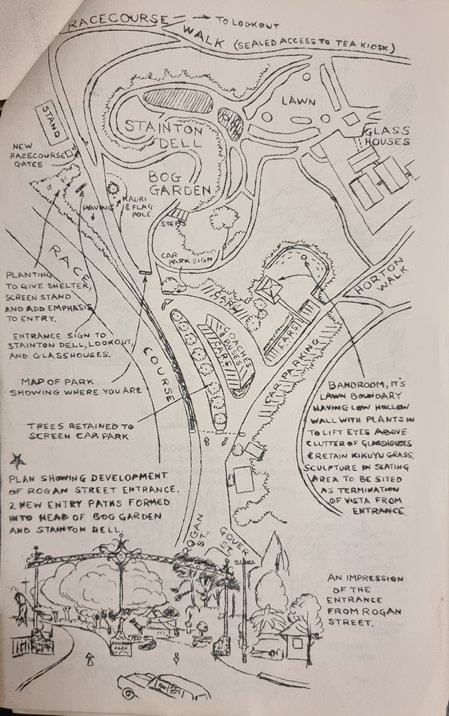 RACECOURSE → TO LOOKOUT
WALK (SEALED ACCESS TO TEA KIOSK)
LAWN
STAND
STAINTON
DELL
GLASS
HOUSES
NEW
RACECOURSE
GATES
BOG
GARDEN
PAVING
KAURI
& FLAG
POLE
STEPS
CAR
PARK SIGN
RACE
COURSE
HORTON
WALK
PLANTING
TO GIVE SHELTER,
SCREEN STAND
AND ADD EMPHASIS
TO ENTRY.
ENTRANCE SIGN TO
STAINTON DELL, LOOKOUT,
AND GLASSHOUSES.
MAP OF PARK
SHOWING WHERE YOU ARE
TREES RETAINED TO
SCREEN CAR PARK
CARS
COACHES
CARS
CAR PARKING
BANDROOM, IT'S
LAWN BOUNDARY
HAVING LOW HOLLOW
WALL WITH PLANTS IN
TO LIFT EYES ABOVE
CLUTTER OF GLASSHOUSES
& RETAIN KIKUYU GRASS.
SCULPTURE IN SEATING
AREA TO BE SITED
AS TERMINATION
OF VISTA FROM
ENTRANCE.
PLAN SHOWING DEVELOPMENT
OF ROGAN STREET ENTRANCE.
2 NEW ENTRY PATHS FORMED
INTO HEAD OF BOG GARDEN
AND STAINTON DELL.
ROGAN
ST.
GOVER
ST.
AN IMPRESSION
OF THE
ENTRANCE
FROM ROGAN
STREET.
PARK